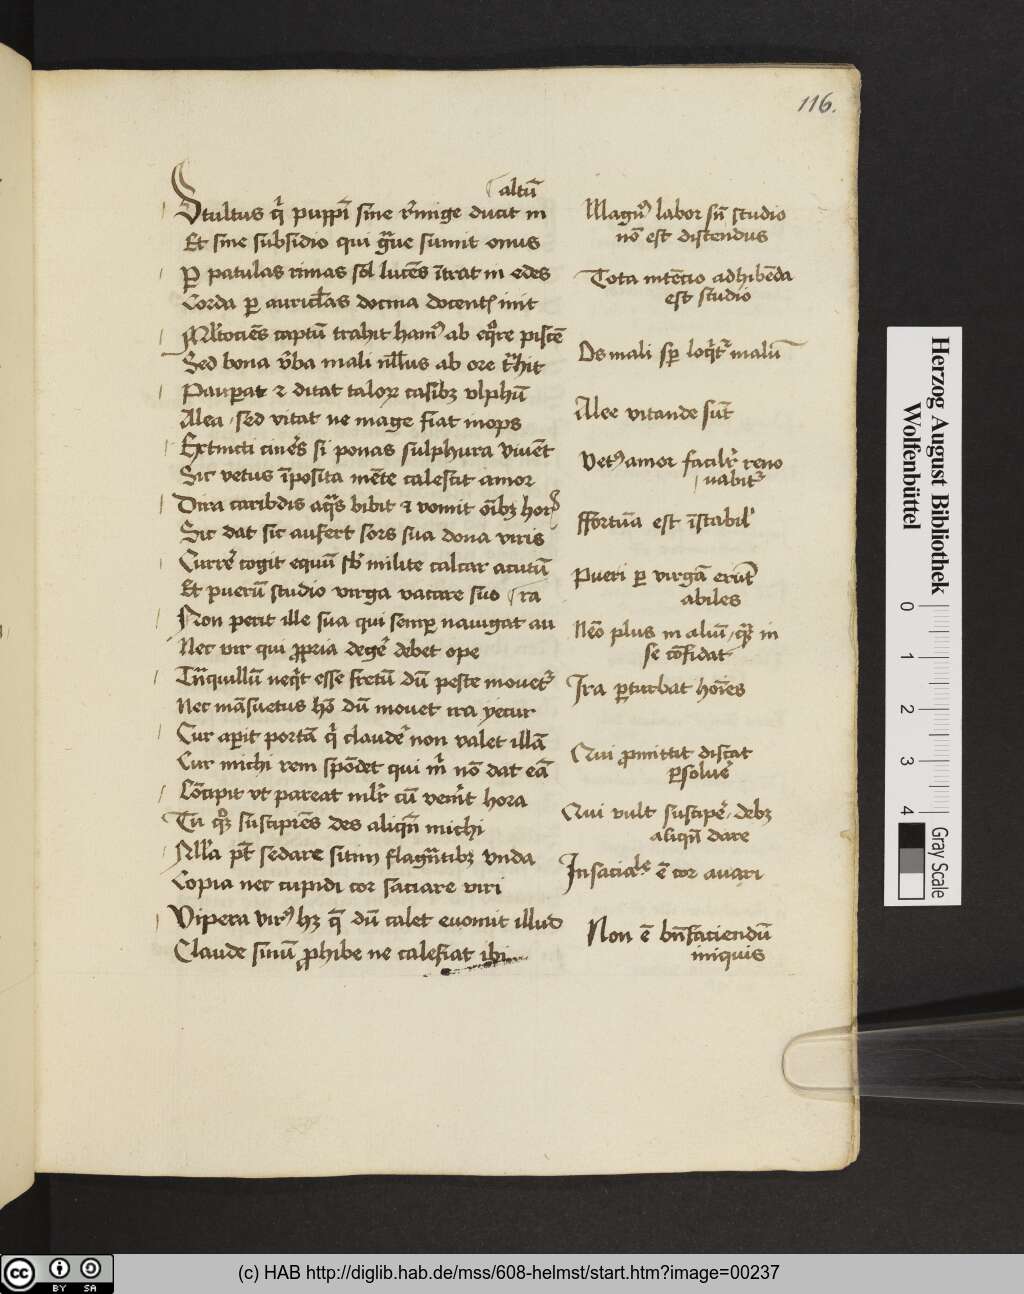 116.
altū
Stultus q̄ puppī sine r̄mige ducit in
Et sine subsidio qui gͣue sumit onus
Ꝑ patulas rimas sol lucēs ītrat in edes
Corda ꝑ auricl̄as docma docentꝭ init
Mltociēs captū trahit ham9 ab eq̊re piscē
Sed bona v̄ba mali nll̄us ab ore t̄hit
Pauꝑat ⁊ ditat talorꝝ casibꝫ vlphū
Alea / sed vitat ne mage fiat inops
Extincti cinēs si ponas sulphura vivēt
Sic vetus īposita mēte calescit amor
Dira caribdis aqͣs bibit ⁊ vomit oībꝫ horꝭ
Sic dat sic aufert sors sua dona viris
Curre᷑ cogit equū sb̄ milite calcar acutū
Et puerū studio virga vacare suo
ra
Non perit ille sua qui semꝑ nauigat au
Nec vir qui ꝓpria dege᷑ debet ope
Tnͣquillū neqͥt esse fretū dū peste mouet᷑
Nec māsuetus hō dū mouet ira yecur
Cur aꝑit portā q̄ claude᷑ non valet illā
Cur michi rem spōdet qui m̄ nō dat eā
Cōcipit vt pareat mlr̄ cū venīt hora
Tu qꝫ suscipiēs des aliqn̄ michi
Nll̄a pt̄ sedare sitim flagn̄tibꝫ vnda
Copia nec cupidi cor saciare viri
Vipera vir9 hꝫ q̄ dū calet euomit illud
Claude sinū ꝓhibe ne calefiat ibi
Magn9 labor sn̄ studio
nō est discendus
Tota intēcio adhibēda
est studio
Os mali sꝑ loqͥt᷑ malū
Alee vitande sūt
Vet9 amor facilr̄ reno
uabit᷑
ffortūa est īstabil̕
Pueri ꝑ virgā erūt
abiles
Nēo plus in aliū / qͣꝫ in
se cōfidat
Ira ꝑturbat hoīes
Qui ꝓmittit discat
ꝑsolue᷑
Qui vult suscipe᷑ / debꝫ
aliqn̄ dare
Insaciale ē cor auari
Non ē bn̄faciendū
iniquis
Herzog August Bibliothek
Wolfenbüttel
0 1 2 3 4
Gray Scale
cc BY SA
(c) HAB http://diglib.hab.de/mss/608-helmst/start.htm?image=00237